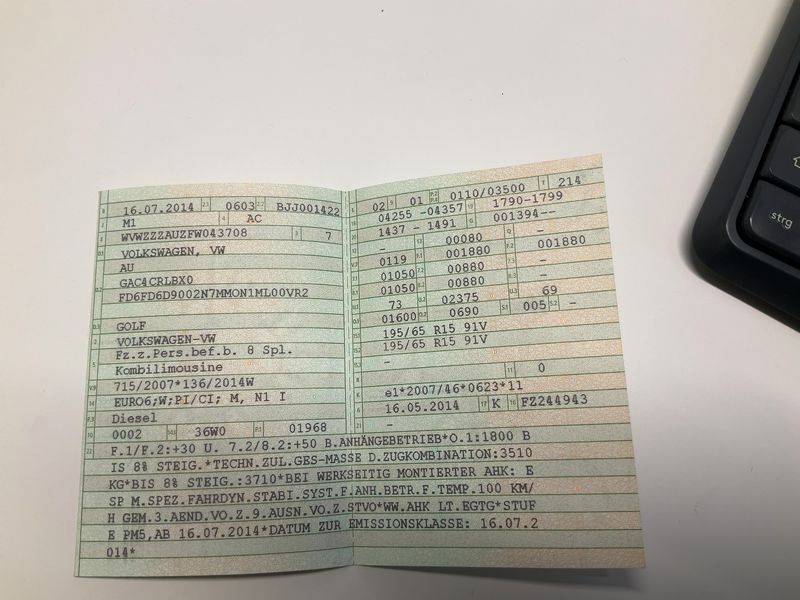 16.07.2014 0603 BJJ001422
M1 AC
WVWZZZAUZFW043708 7
VOLKSWAGEN, VW
AU
GAC4CRLBX0
FD6FD6D9002N7MMON1ML00VR2
GOLF
VOLKSWAGEN-VW
Fz.z.Pers.bef.b. 8 Spl.
Kombilimousine
715/2007*136/2014W
EURO6;W;PI/CI; M, N1 I
Diesel
0002 36W0 01968
02 01 0110/03500 214
04255 -04357 1790-1799
1437 - 1491 001394--
- 00080 -
0119 001880 001880
01050 00880 -
01050 00880 -
73 02375 69
01600 0690 005 -
195/65 R15 91V
195/65 R15 91V
-
- 0
e1*2007/46*0623*11
16.05.2014 K FZ244943
-
F.1/F.2:+30 U. 7.2/8.2:+50 B.ANHÄNGEBETRIEB*O.1:1800 B
IS 8% STEIG.*TECHN.ZUL.GES-MASSE D.ZUGKOMBINATION:3510
KG*BIS 8% STEIG.:3710*BEI WERKSEITIG MONTIERTER AHK: E
SP M.SPEZ.FAHRDYN.STABI.SYST.F.ANH.BETR.F.TEMP.100 KM/
H GEM.3.AEND.VO.Z.9.AUSN.VO.Z.STVO*WW.AHK LT.EGTG*STUF
E PM5,AB 16.07.2014*DATUM ZUR EMISSIONSKLASSE: 16.07.2
014*
strg